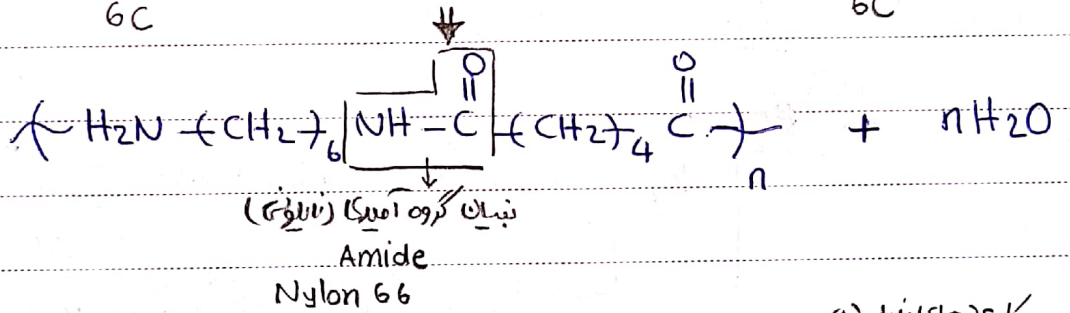 6C 6C
O O
|| ||
( H2N -(CH2)6 NH - C -(CH2)4 C )n + nH2O
بنیان گروه آمیدی (نایلونی)
Amide
Nylon 66